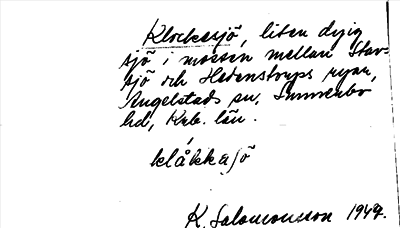 Klockasjö, liten dyig
sjö i mossen mellan Stav-
sjö och Hedenstorps ryar,
Angelstads sn, Sunnerbo
hd, Krb. län.
klåkkasjö
K. Salomonsson 1949.